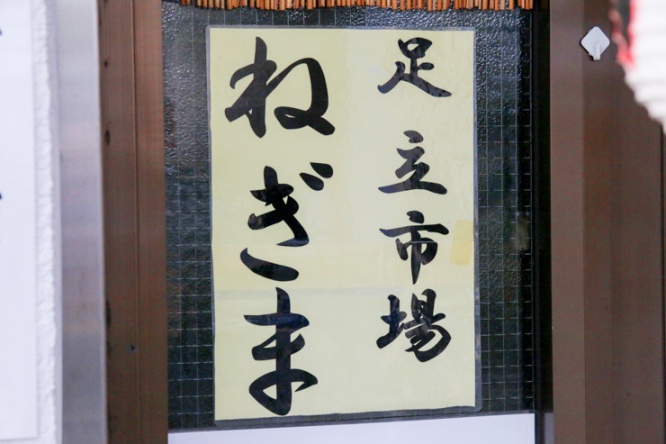 足立市場
ねぎま